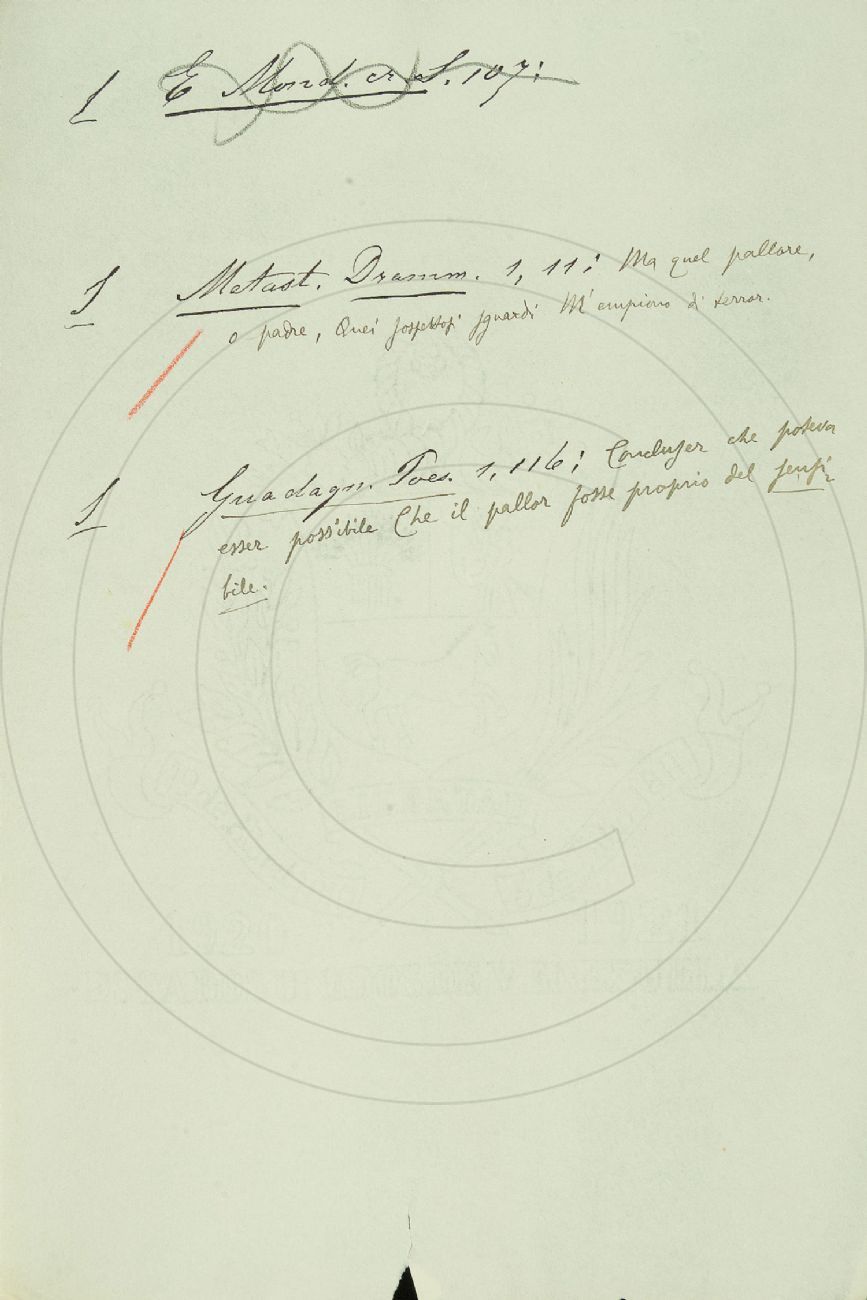 S E Mond. cr S. 107:
S Metast. Dramm. 1, 11: Ma quel pallore,
o padre, Quei sospettosi sguardi M'empiono di terror.
S Guadagn. Poes. 1, 116: Concluser che poteva
esser possibile Che il pallor fosse proprio del sensi-
bile.